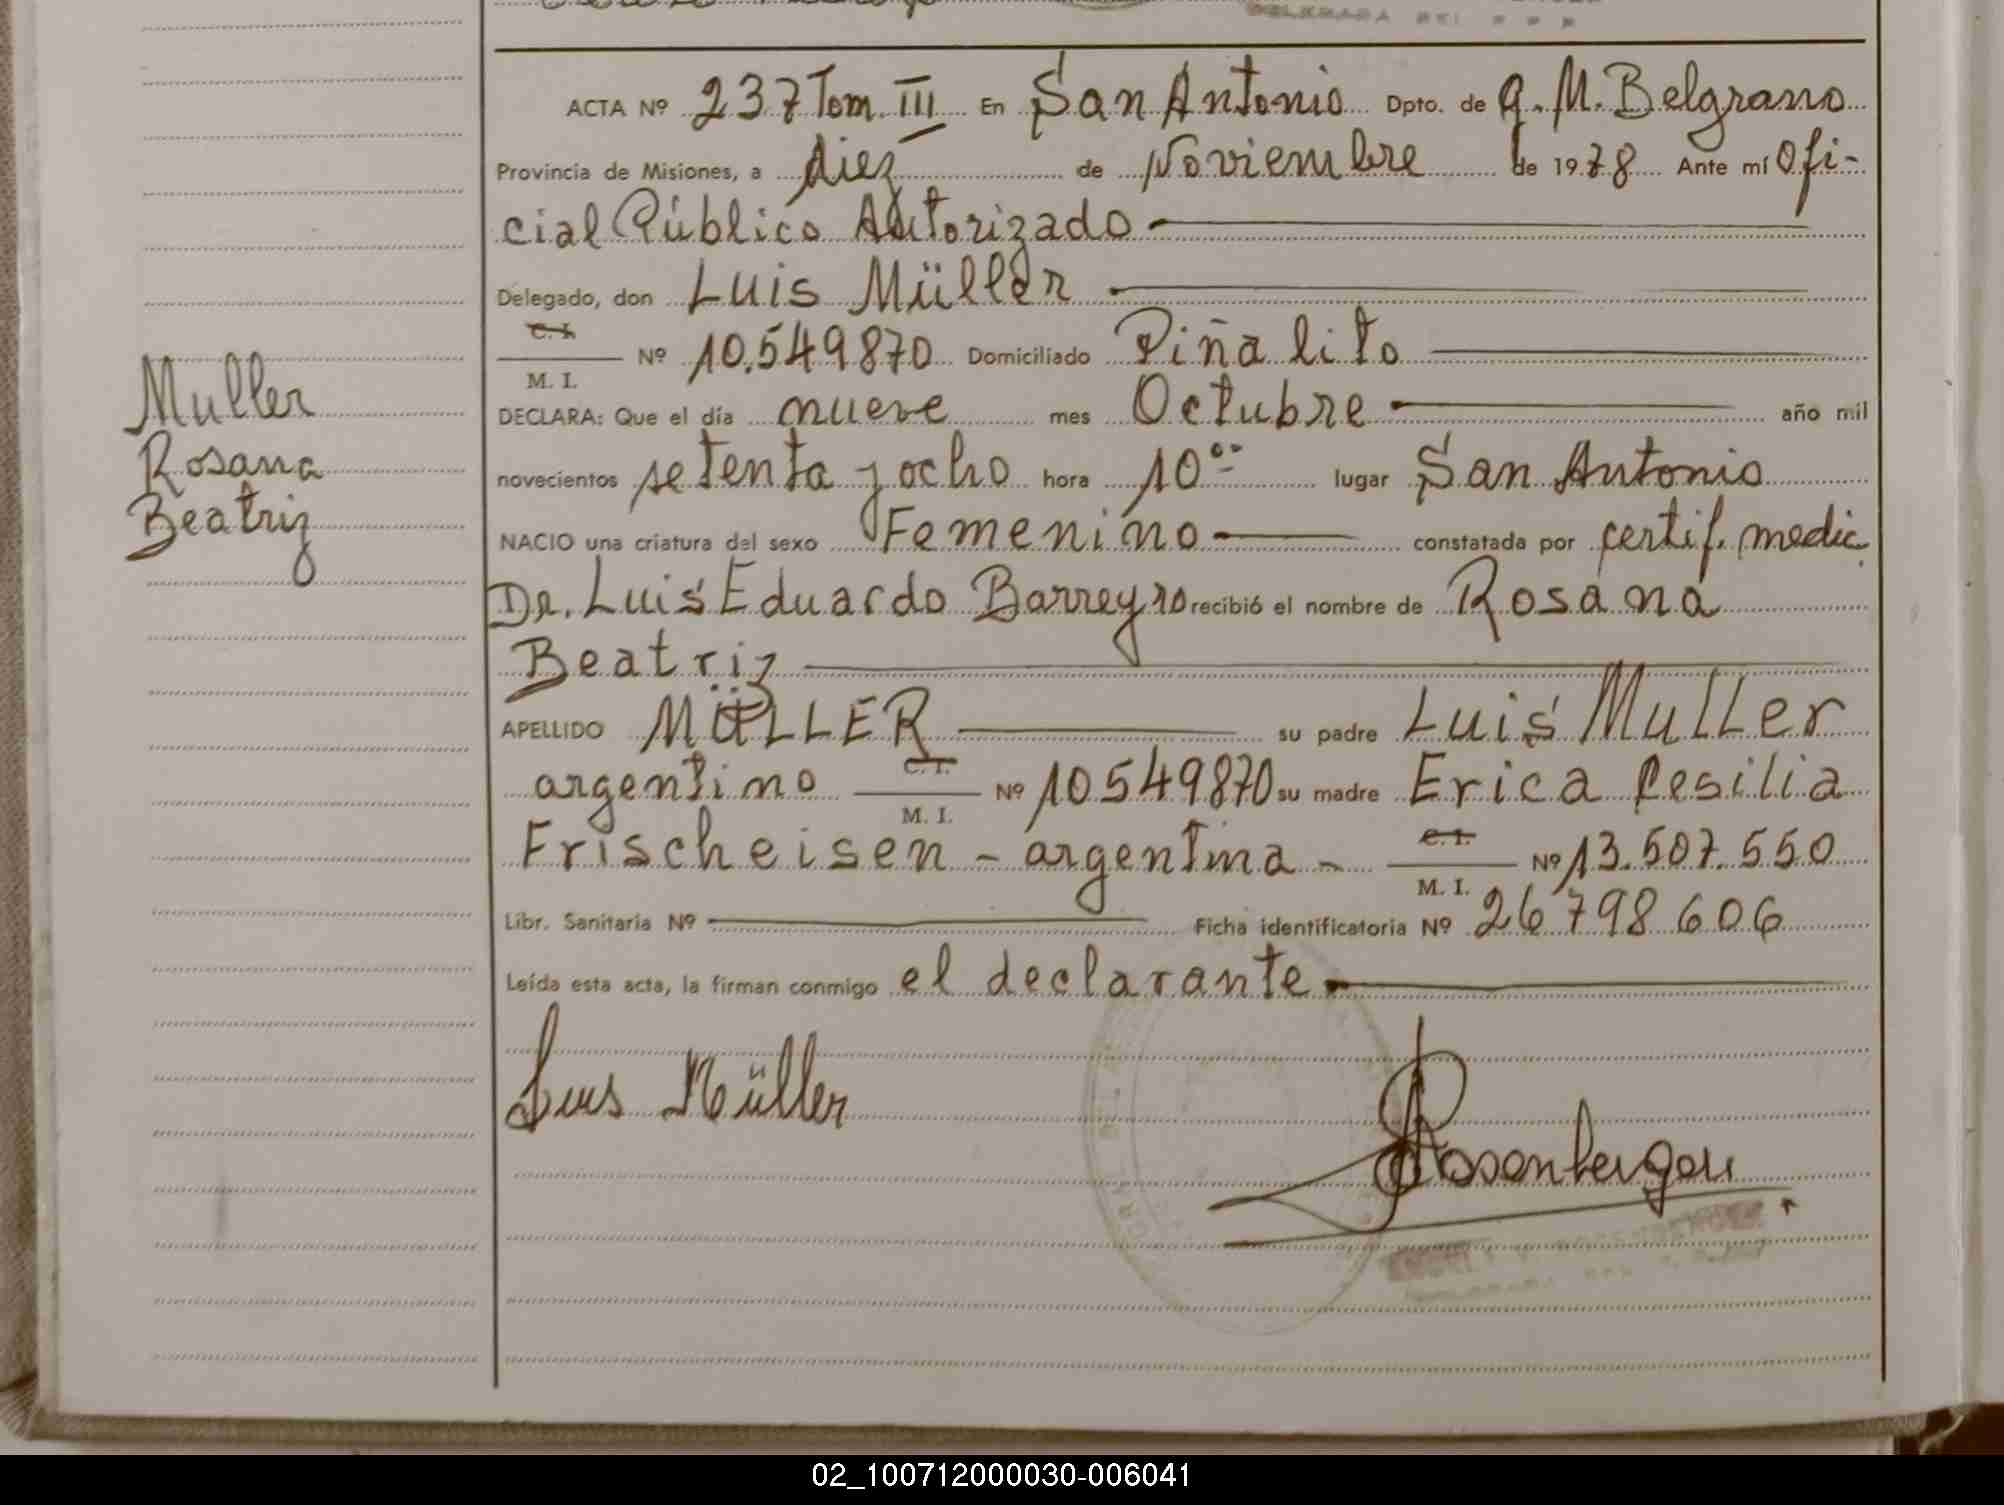 ACTA Nº 237 Tom. III En San Antonio Dpto. de G. M. Belgrano
Provincia de Misiones, a diez de Noviembre de 1978 Ante mí Ofi-
cial Público Autorizado
Delegado, don Luis Müller
C. I.
M. I. Nº 10.549870 Domiciliado Piñalito
DECLARA: Que el día nueve mes Octubre año mil
novecientos setenta y ocho hora 10°° lugar San Antonio
NACIO una criatura del sexo Femenino constatada por certif. medic.
Dr. Luis Eduardo Barreyro recibió el nombre de Rosana
Beatriz
APELLIDO MÜLLER su padre Luis Muller
argentino C. I. M. I. Nº 10549870 su madre Erica Cesilia
Frischeisen - argentina - C. I. M. I. Nº 13.507.550
Libr. Sanitaria Nº Ficha identificatoria Nº 26798606
Leída esta acta, la firman conmigo el declarante
Luis Müller
Muller
Rosana
Beatriz
02_100712000030-006041